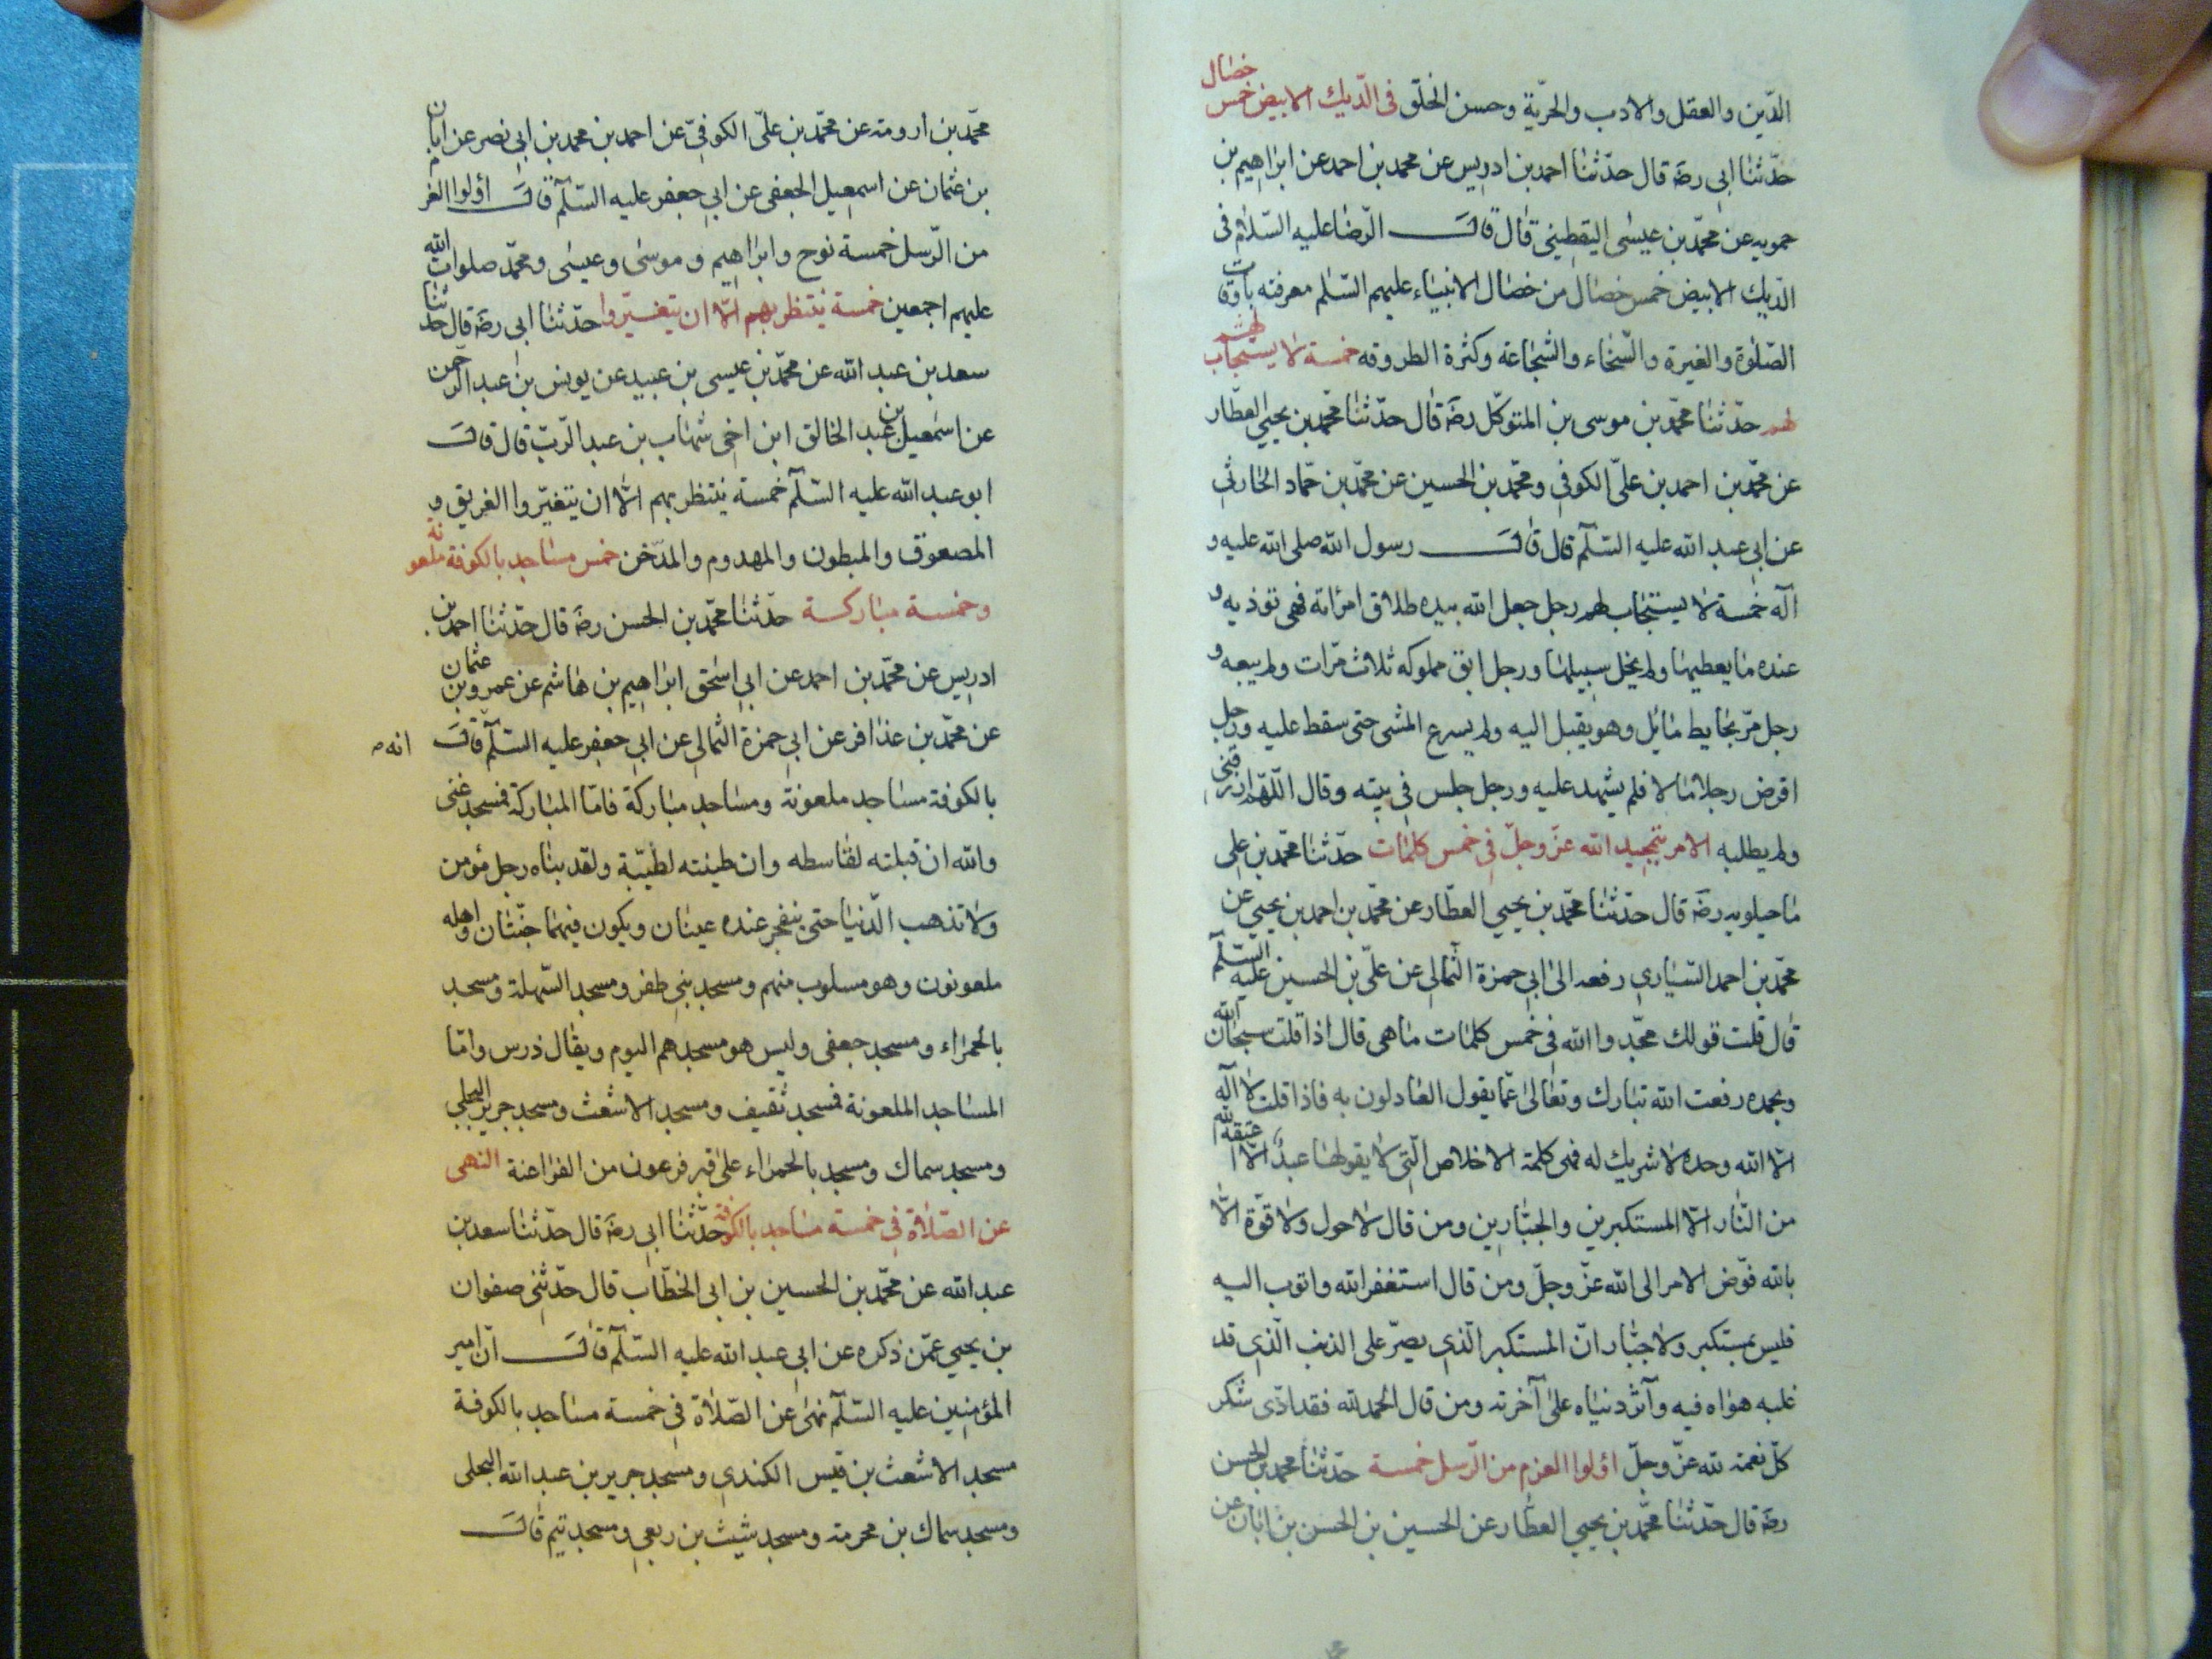 الدّين والعقل والادب والحرّية وحسن الخلق فى الدّيك الابيض خمس خصال
حدّثنا ابى رضه قال حدّثنا احمد بن ادريس عن محمد بن احمد عن ابراهيم بن
حمويه عن محمّد بن عيسى اليقطينى قال قال الرّضا عليه السّلام فى
الدّيك الابيض خمس خصال من خصال الانبياء عليهم السّلم معرفته باوقات
الصّلوة والغيرة والسّخاء والشّجاعة وكثرة الطروقه خمسة لا يستجاب
لهم حدّثنا محمّد بن موسى بن المتوكّل رضه قال حدّثنا محمّد بن يحيى العطّار
عن محمّد بن احمد بن علىّ الكوفى ومحمّد بن الحسين عن محمّد بن حمّاد الحارثى
عن ابى عبد الله عليه السّلم قال قال رسول الله صلى الله عليه و
آله خمسة لا يستجاب لهم رجل جعل الله بيده طلاق امرأته فهى توذيه و
عنده ما يعطيها ولم يخل سبيلها ورجل ابق مملوكه ثلاث مرّات ولم يبعه و
رجل مرّ بحايط مايل وهو يقبل اليه ولم يسرع المشى حتى سقط عليه ورجل
اقرض رجلا مالا فلم يشهد عليه ورجل جلس فى بيته وقال اللّهمّ ارزقنى
ولم يطلبه الامر بتمجيد الله عزّ وجلّ فى خمس كلمات حدّثنا محمّد بن على
ماجيلويه رضه قال حدّثنا محمّد بن يحيى العطّار عن محمّد بن احمد بن يحيى عن
محمّد بن احمد السّيارى رفعه الى ابى حمزة الثمالى عن علىّ بن الحسين عليه السّلم
قال قلت قولك مجّدوا الله فى خمس كلمات ما هى قال اذا قلت سبحان الله
وبحمده رفعت الله تبارك وتعالى عمّا يقول العادلون به فاذا قلت لا اله
الّا الله وحده لا شريك له فهى كلمة الاخلاص الّتى لا يقولها عبد الّا اعتقه الله
من النّار الّا المستكبرين والجبّارين ومن قال لا حول ولا قوّة الّا
بالله فوّض الامر الى الله عزّ وجلّ ومن قال استغفر الله واتوب اليه
فليس بمستكبر ولا جبّار انّ المستكبر الّذى يصرّ على الذنب الّذى قد
غلبه هواه فيه وآثر دنياه على آخرته ومن قال الحمد لله فقد ادّى شكر
كلّ نعمة لله عزّ وجلّ اولوا العزم من الرّسل خمسة حدّثنا محمد بن الحسن
رضه قال حدّثنا محمّد بن يحيى العطّار عن الحسين بن الحسن بن ابان عن
محمّد بن ارومه عن محمّد بن علىّ الكوفىّ عن احمد بن محمد بن ابى نصر عن ابان
بن عثمان عن اسمعيل الجعفى عن ابى جعفر عليه السّلم قال اولوا العزم
من الرّسل خمسة نوح وابراهيم وموسى وعيسى ومحمّد صلوات الله
عليهم اجمعين خمسة ينتظر بهم الّا ان يتغيّروا حدّثنا ابى رضه قال حدثنا
سعد بن عبد الله عن محمّد بن عيسى بن عبيد عن يونس بن عبد الرحمن
عن اسمعيل بن عبد الخالق ابن اخى شهاب بن عبد الرّبّ قال قال
ابو عبد الله عليه السّلم خمسة ينتظر بهم الّا ان يتغيّروا الغريق و
المصعوق والمبطون والمهدوم والمدّخن خمس مساجد بالكوفة ملعونة
وخمسة مباركة حدّثنا محمّد بن الحسن رضه قال حدّثنا احمد بن
ادريس عن محمّد بن احمد عن ابى اسحق ابراهيم بن هاشم عن عمرو بن عثمان
عن محمّد بن عذافر عن ابى حمزة الثمالى عن ابى جعفر عليه السّلم قال انه
بالكوفة مساجد ملعونة ومساجد مباركة فامّا المباركة فمسجد غنى
والله ان قبلته لقاسطه وان طينته لطيّبة ولقد بناه رجل مؤمن
ولا تذهب الدّنيا حتى ينفجر عنده عينان ويكون فيهما جنّتان واهله
ملعونون وهو مسلوب منهم ومسجد بنى ظفر ومسجد السّهلة ومسجد
بالحمراء ومسجد جعفى وليس هو مسجدهم اليوم ويقال درس وامّا
المساجد الملعونة فمسجد ثقيف ومسجد الاشعث ومسجد جرير البجلى
ومسجد سماك ومسجد بالحمراء على قبر فرعون من الفراعنة النهى
عن الصّلاة فى خمسة مساجد بالكوفة حدّثنا ابى رضه قال حدّثنا سعد بن
عبد الله عن محمّد بن الحسين بن ابى الخطّاب قال حدّثنى صفوان
بن يحيى عمّن ذكره عن ابى عبد الله عليه السّلم قال انّ امير
المؤمنين عليه السّلم نهى عن الصّلاة فى خمسة مساجد بالكوفة
مسجد الاشعث بن قيس الكندى ومسجد جرير بن عبد الله البجلى
ومسجد سماك بن مخرمة ومسجد شيث بن ربعى ومسجد تيم قال